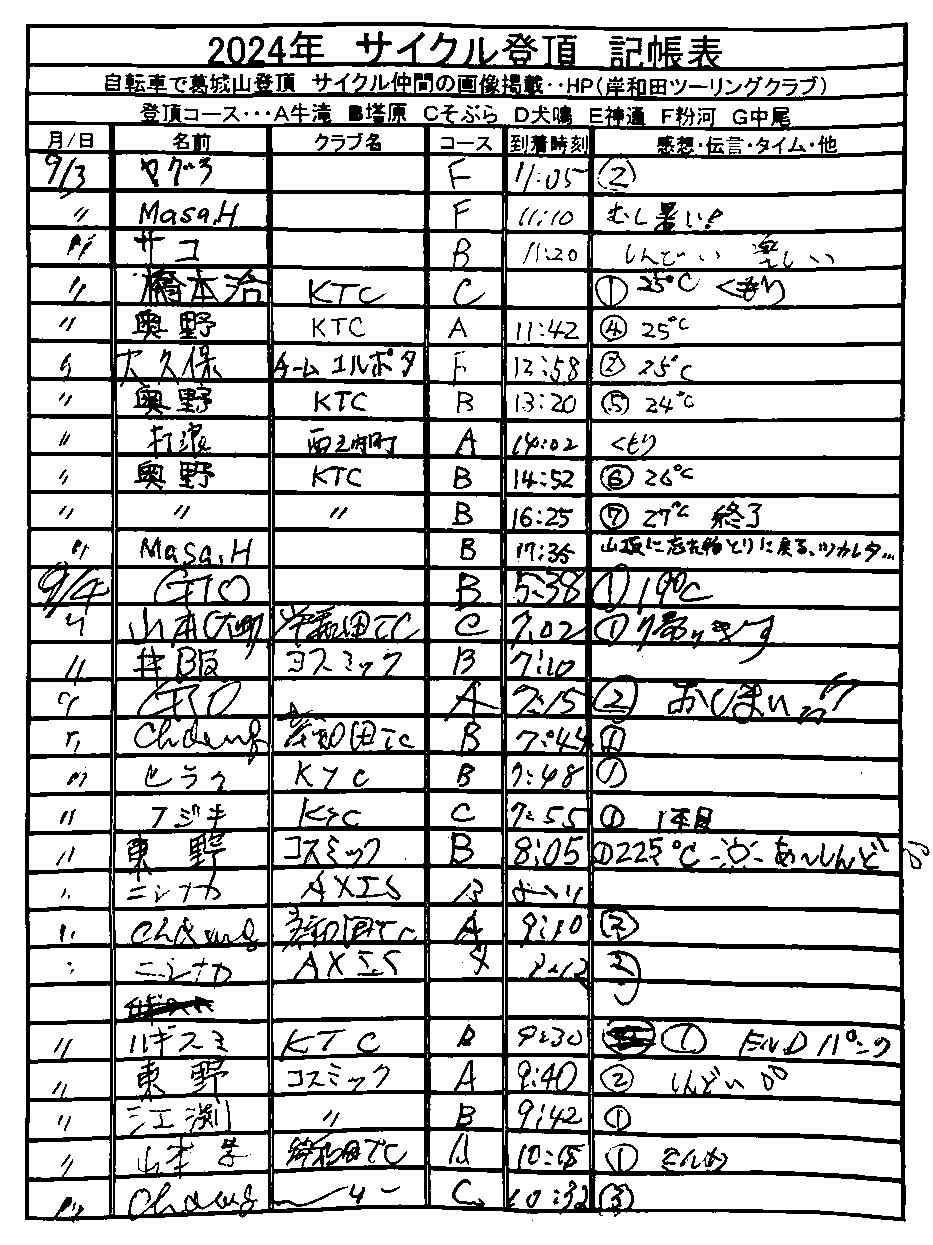 2024年 サイクル登頂 記帳表
自転車で葛城山登頂 サイクル仲間の画像掲載‥HP(岸和田ツーリングクラブ)
登頂コース･･･A牛滝 B塔原 Cそぶら D犬鳴 E神通 F粉河 G中尾
月/日 名前 クラブ名 コース 到着時刻 感想・伝言・タイム・他
9/3 ヤグチ F 11:05 ②
〃 Masa.H F 11:10 むし暑い!
〃 サコ B 11:20 しんどい 楽しい
〃 橋本治 KTC C ① 25℃ くもり
〃 奥野 KTC A 11:42 ④ 25℃
〃 大久保 チームコルポタ F 12:58 ② 25℃
〃 奥野 KTC B 13:20 ⑤ 24℃
〃 打浪 A 14:02 くもり
〃 奥野 KTC B 14:52 ⑥ 26℃
〃 〃 〃 B 16:25 ⑦ 27℃ 終了
〃 Masa.H B 17:35 山頂に忘れ物とりに戻る、ツカレタ…
9/4 GIO B 5:38 ① 19℃
〃 山本 岸和田TC C 7:02 ①
〃 井阪 コスミック B 7:10
〃 GIO A 7:15 ② おしまい
〃 Chaung 岸和田TC B 7:44 ①
〃 ヒラク KTC B 7:48 ①
〃 フジキ KTC C 7:55 ① 1本目
〃 東野 コスミック B 8:05 ① 22.5℃ あ〜しんど
〃 ニシナカ AXIS B
〃 Chaung 岸和田TC A 9:10 ②
〃 ニシナカ AXIS ②
〃 ハギスミ KTC B 9:30 ① END パンク
〃 東野 コスミック A 9:40 ② しんどい
〃 江渕 〃 B 9:42 ①
〃 山本 岸和田TC 10:15 ①
〃 Chaung 〃 C 10:32 ③